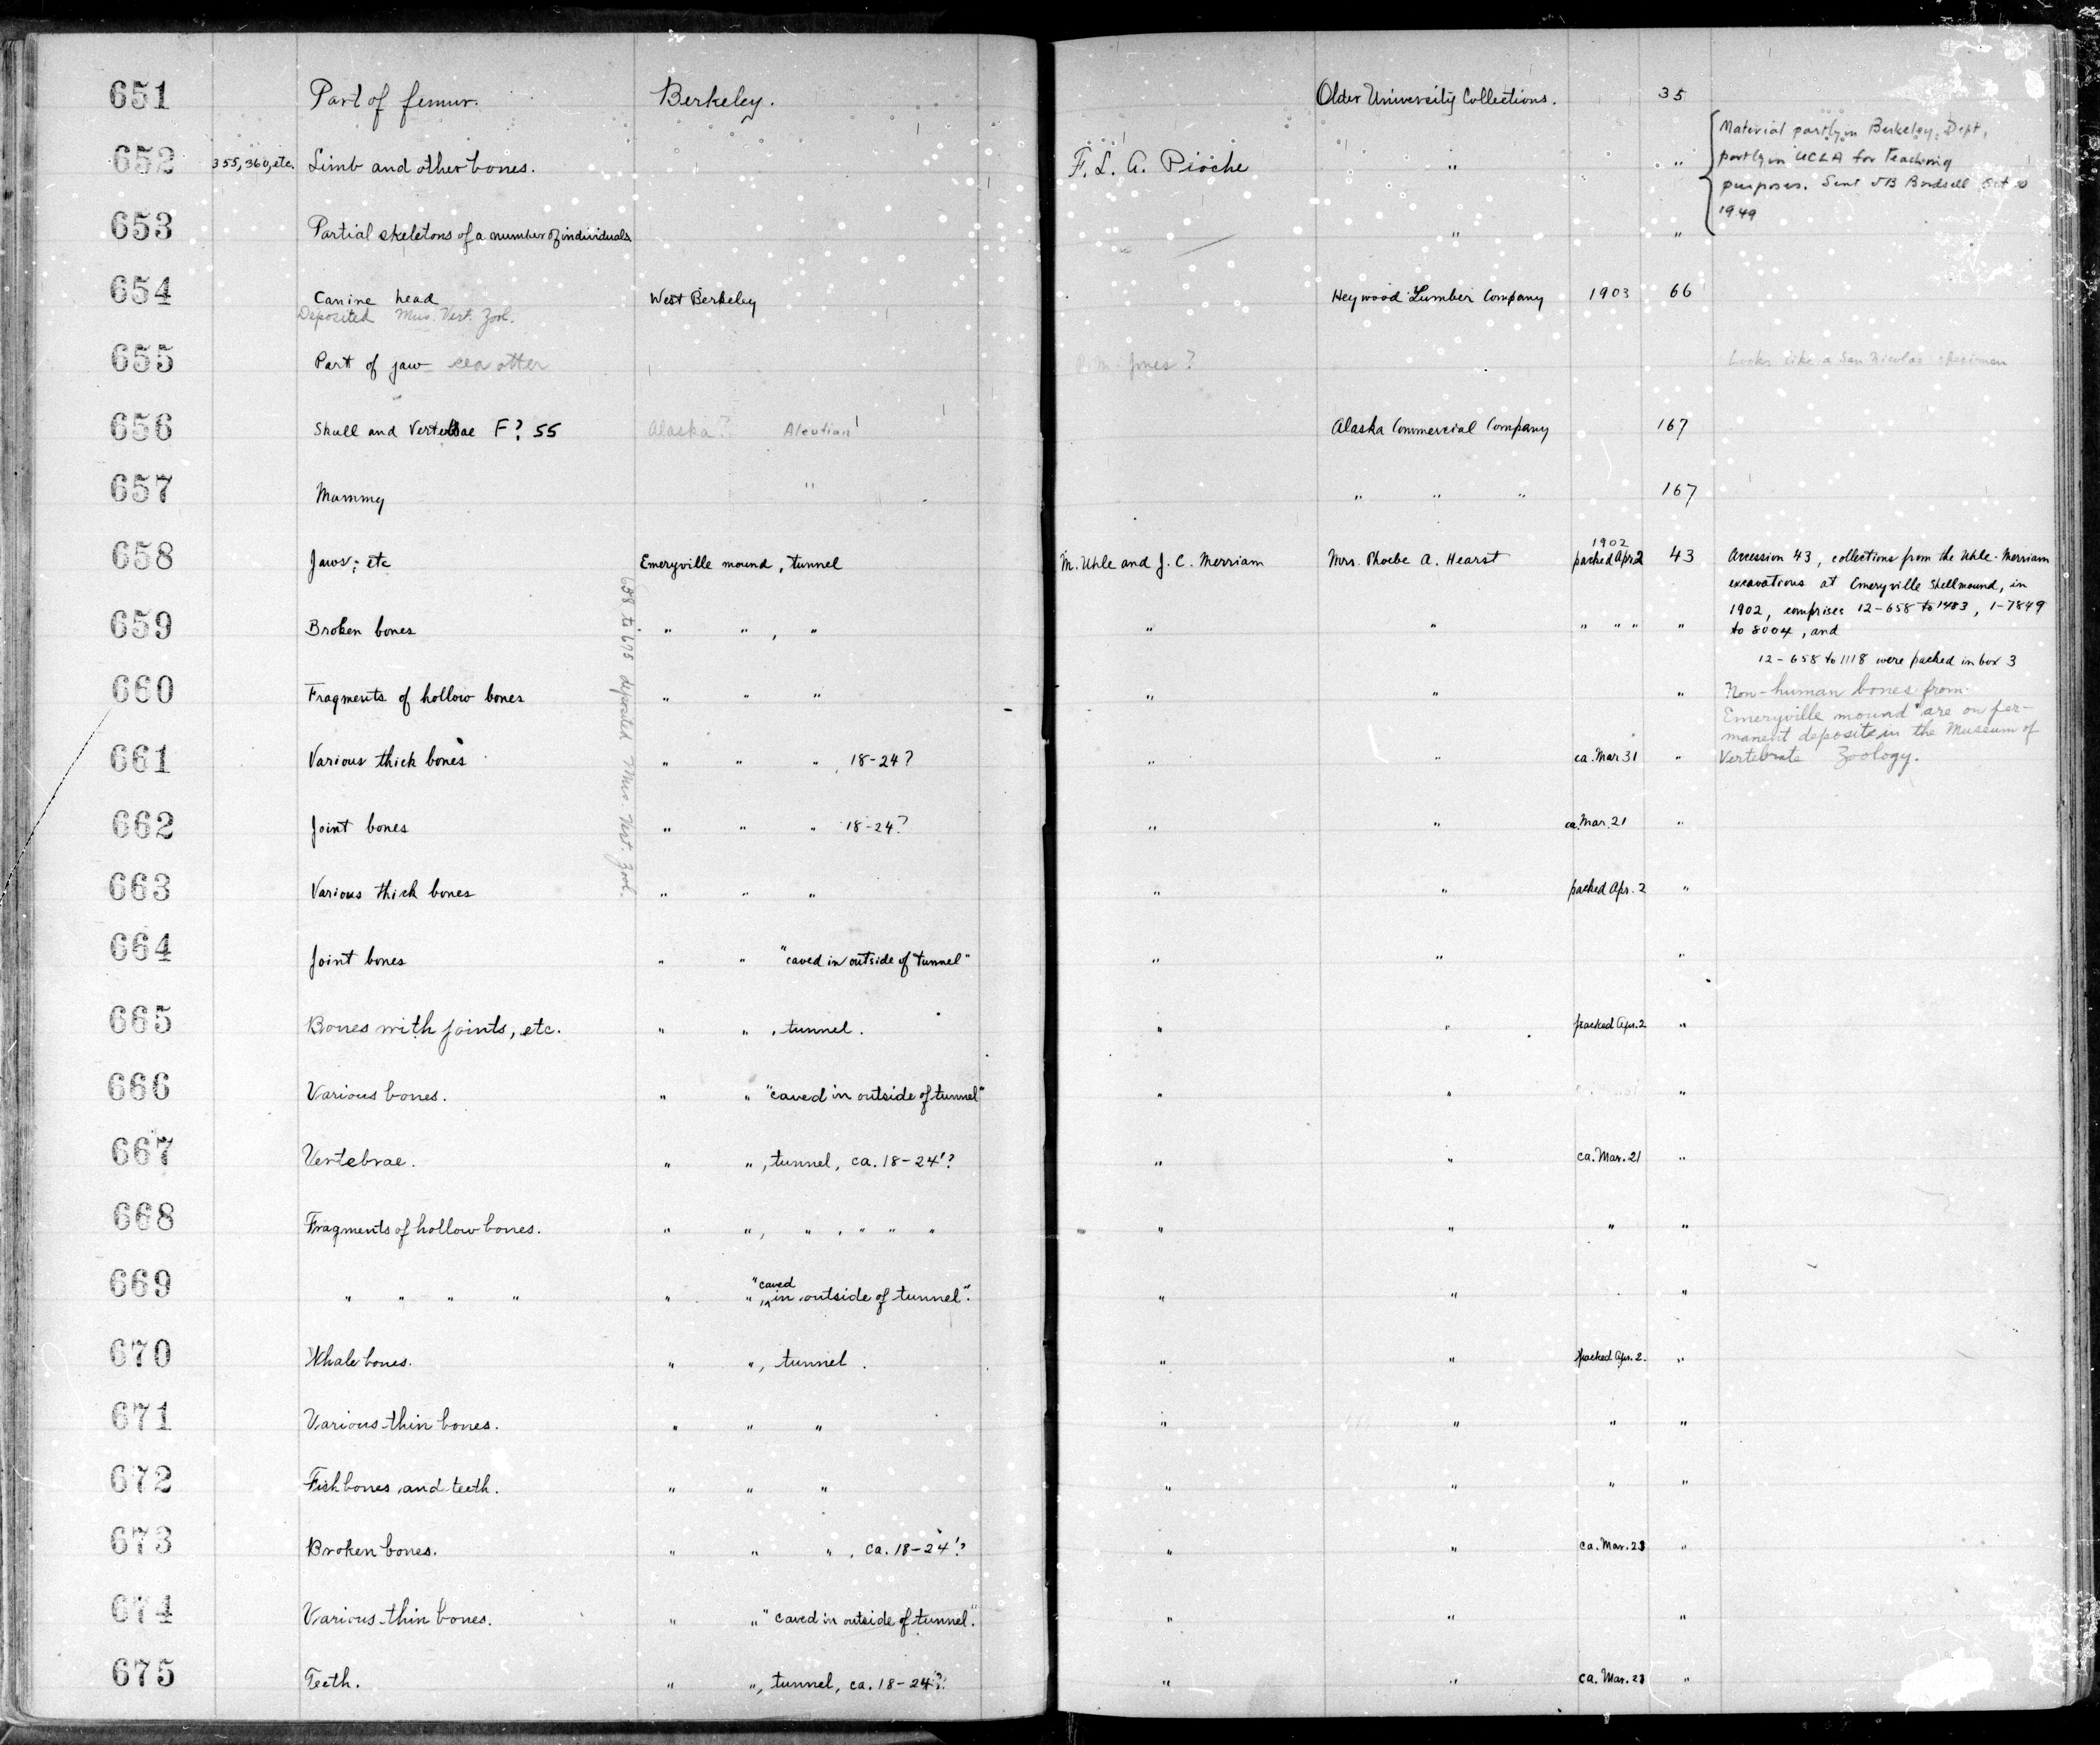 651 Part of femur. Berkeley. Older University Collections. 35
652 355, 360, etc. Limb and other bones. F. L. A. Pioche " "
Material partly in Berkeley, Dept,
partly in UCLA for Teaching
purposes. Sent JB Birdsell Oct
1949
653 Partial skeletons of a number of individuals " "
654 Canine head West Berkeley Heywood Lumber Company 1903 66
Deposited Mus. Vert. Zool.
655 Part of jaw sea otter Jones? Looks like a San Nicolas specimen
656 Skull and Vertebrae F? 55 Alaska? Aleutian Alaska Commercial Company 167
657 Mummy " " " " 167
658 Jaws, etc Emeryville mound, tunnel M. Uhle and J. C. Merriam Mrs. Phoebe A. Hearst 1902 packed Apr. 2 43
Accession 43, collections from the Uhle-Merriam
excavations at Emeryville Shellmound, in
1902, comprises 12-658 to 1483, 1-7849
to 8004, and
12-658 to 1118 were packed in box 3
Non-human bones from
Emeryville mound are on per-
manent deposite in the Museum of
Vertebrate Zoology.
658 to 675 deposited Mus. Vert. Zool.
659 Broken bones " " , " " " " " " "
660 Fragments of hollow bones " " " " " "
661 Various thick bones " " " , 18-24? " " ca. Mar 31 "
662 Joint bones " " " 18-24? " " ca. Mar. 21 "
663 Various thick bones " " " " " packed Apr. 2 "
664 Joint bones " " "caved in outside of tunnel" " " "
665 Bones with joints, etc. " " , tunnel. " " packed Apr. 2 "
666 Various bones. " " "caved in outside of tunnel" " " "
667 Vertebrae. " " , tunnel, ca. 18-24'? " " ca. Mar. 21 "
668 Fragments of hollow bones. " " , " , " " " " " " "
669 " " " " " " , "caved in outside of tunnel". " " "
670 Whale bones. " " , tunnel. " " packed Apr. 2. "
671 Various thin bones. " " " " " " "
672 Fish bones and teeth. " " " " " " "
673 Broken bones. " " " , ca. 18-24'? " " ca. Mar. 23 "
674 Various thin bones. " " "caved in outside of tunnel." " " "
675 Teeth. " " , tunnel, ca. 18-24'? " " ca. Mar. 23 "